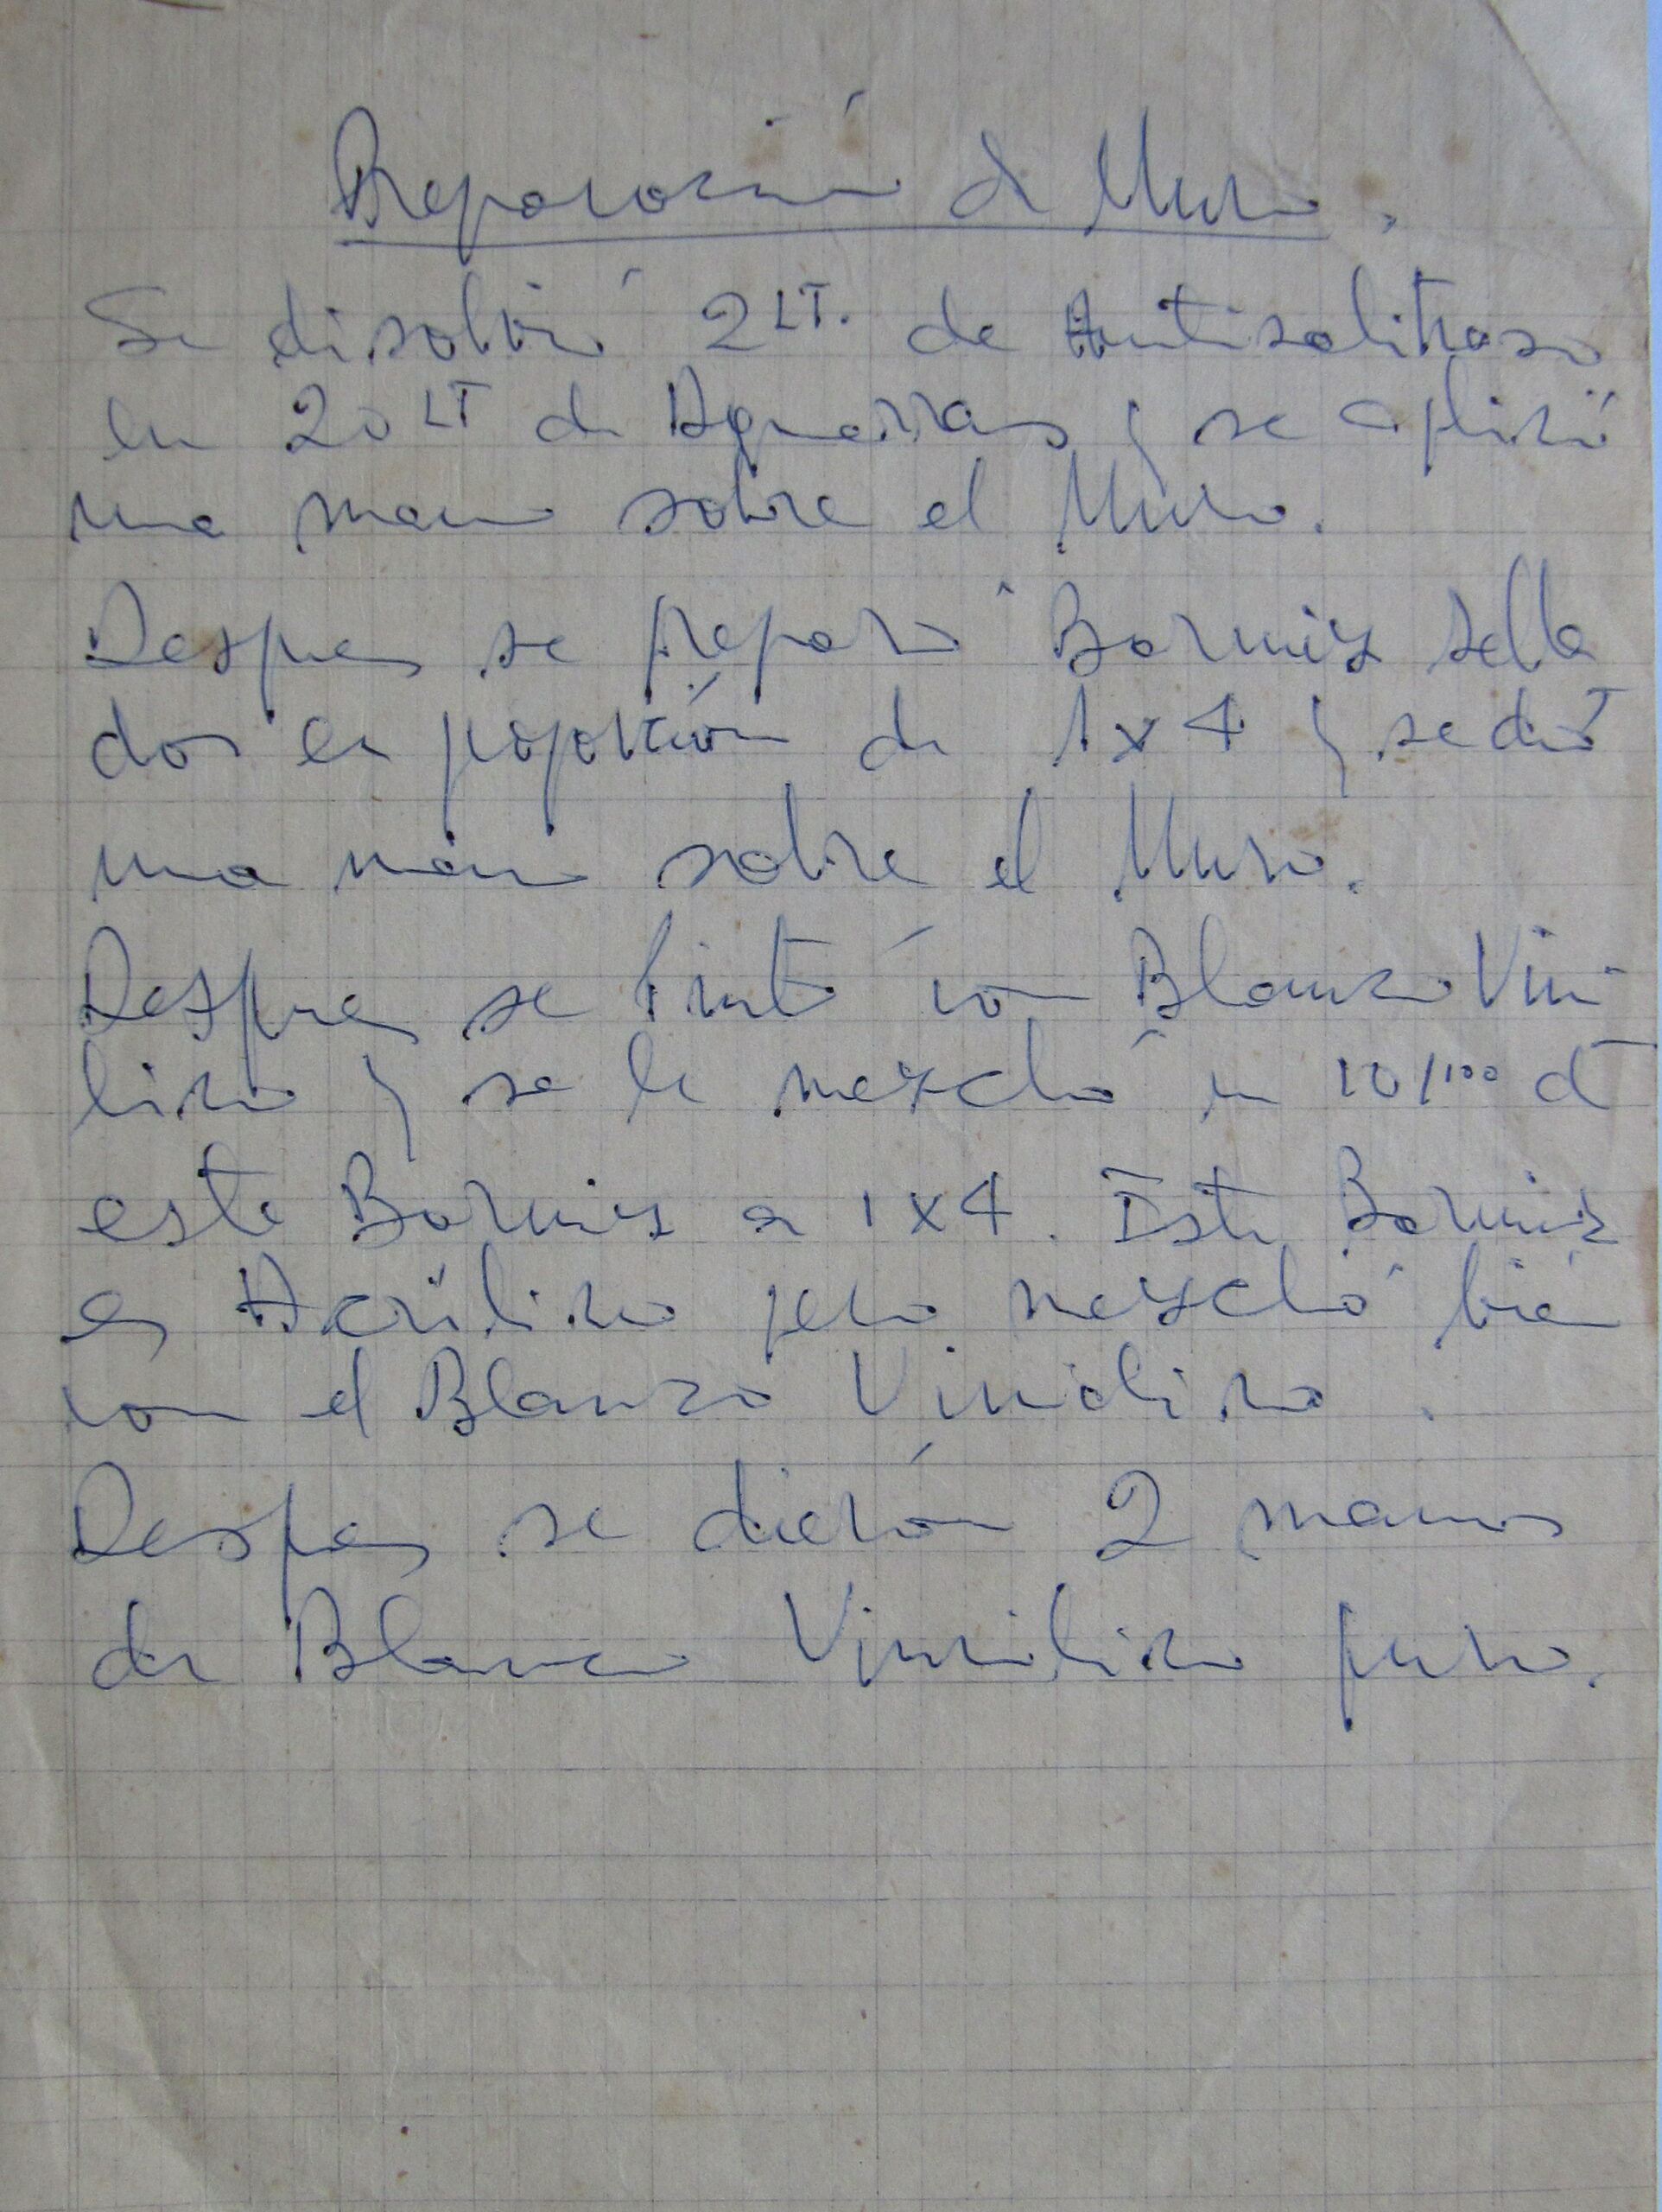 Preparación de Muro.
Se disolvió 2 LT. de Antisalitroso
en 20 LT de Aguarras y se aplicó
una mano sobre el Muro.
Despues se preparó Barniz sella
dor en proporción de 1x4 y se dió
una mano sobre el Muro.
Despues se pintó con Blanco Vini
lico y se le mezcló un 10/100 d
este Barniz a 1x4. Este Barniz
es Acrílico pero mezcló bién
con el Blanco Vinilico.
Despues se dierón 2 manos
de Blanco Vinilico puro.